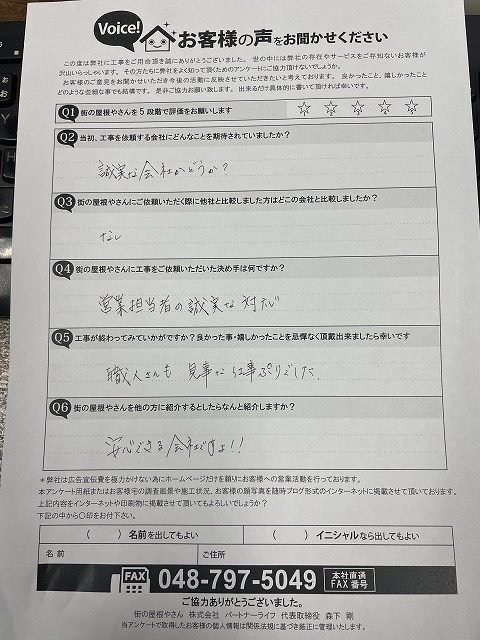 Voice! お客様の声をお聞かせください
この度は弊社に工事をご用命頂き誠にありがとうございました。世の中には弊社の存在やサービスをご存知ないお客様が
沢山いらっしゃいます。その方たちに弊社をよく知って頂くためのアンケートにご協力頂けないでしょうか。
お客様のご意見をお聞かせいただき今後の活動に反映させていただきたいと考えております。良かったこと、嬉しかったこと
どのような些細な事でも結構です。是非ご協力お願い致します。出来るだけ具体的に書いて頂ければ幸いです。
Q1 街の屋根やさんを5段階で評価をお願いします ☆ ☆ ☆ ☆ ☆
Q2 当初、工事を依頼する会社にどんなことを期待されていましたか?
誠実な会社かどうか?
Q3 街の屋根やさんにご依頼いただく際に他社と比較しました方はどこの会社と比較しましたか?
なし
Q4 街の屋根やさんに工事をご依頼いただいた決め手は何ですか?
営業担当者の誠実な対応
Q5 工事が終わってみていかがですか?良かった事・嬉しかったことを忌憚なく頂戴出来ましたら幸いです
職人さんも 見事な工事ぶりでした。
Q6 街の屋根やさんを他の方に紹介するとしたらなんと紹介しますか?
安心できる会社ですよ!!
*弊社は広告宣伝費を極力かけない為にホームページだけを頼りにお客様への営業活動を行っております。
本アンケート用紙またはお客様宅の調査風景や施工状況、お客様の顔写真を随時ブログ形式のインターネットに掲載させて頂いております。
上記内容をインターネットや印刷物に掲載させて頂いてもよろしいでしょうか?
下記の中から〇印をお付下さい。
( ) 名前を出してもよい ( ) イニシャルなら出してもよい
名前 ご住所
FAX 048-797-5049 本社直通 FAX番号
ご協力ありがとうございました。
街の屋根やさん 株式会社 パートナーライフ 代表取締役 森下 剛
当アンケートで取得したお客様の個人情報は関係法規に基づき厳正に管理いたします。